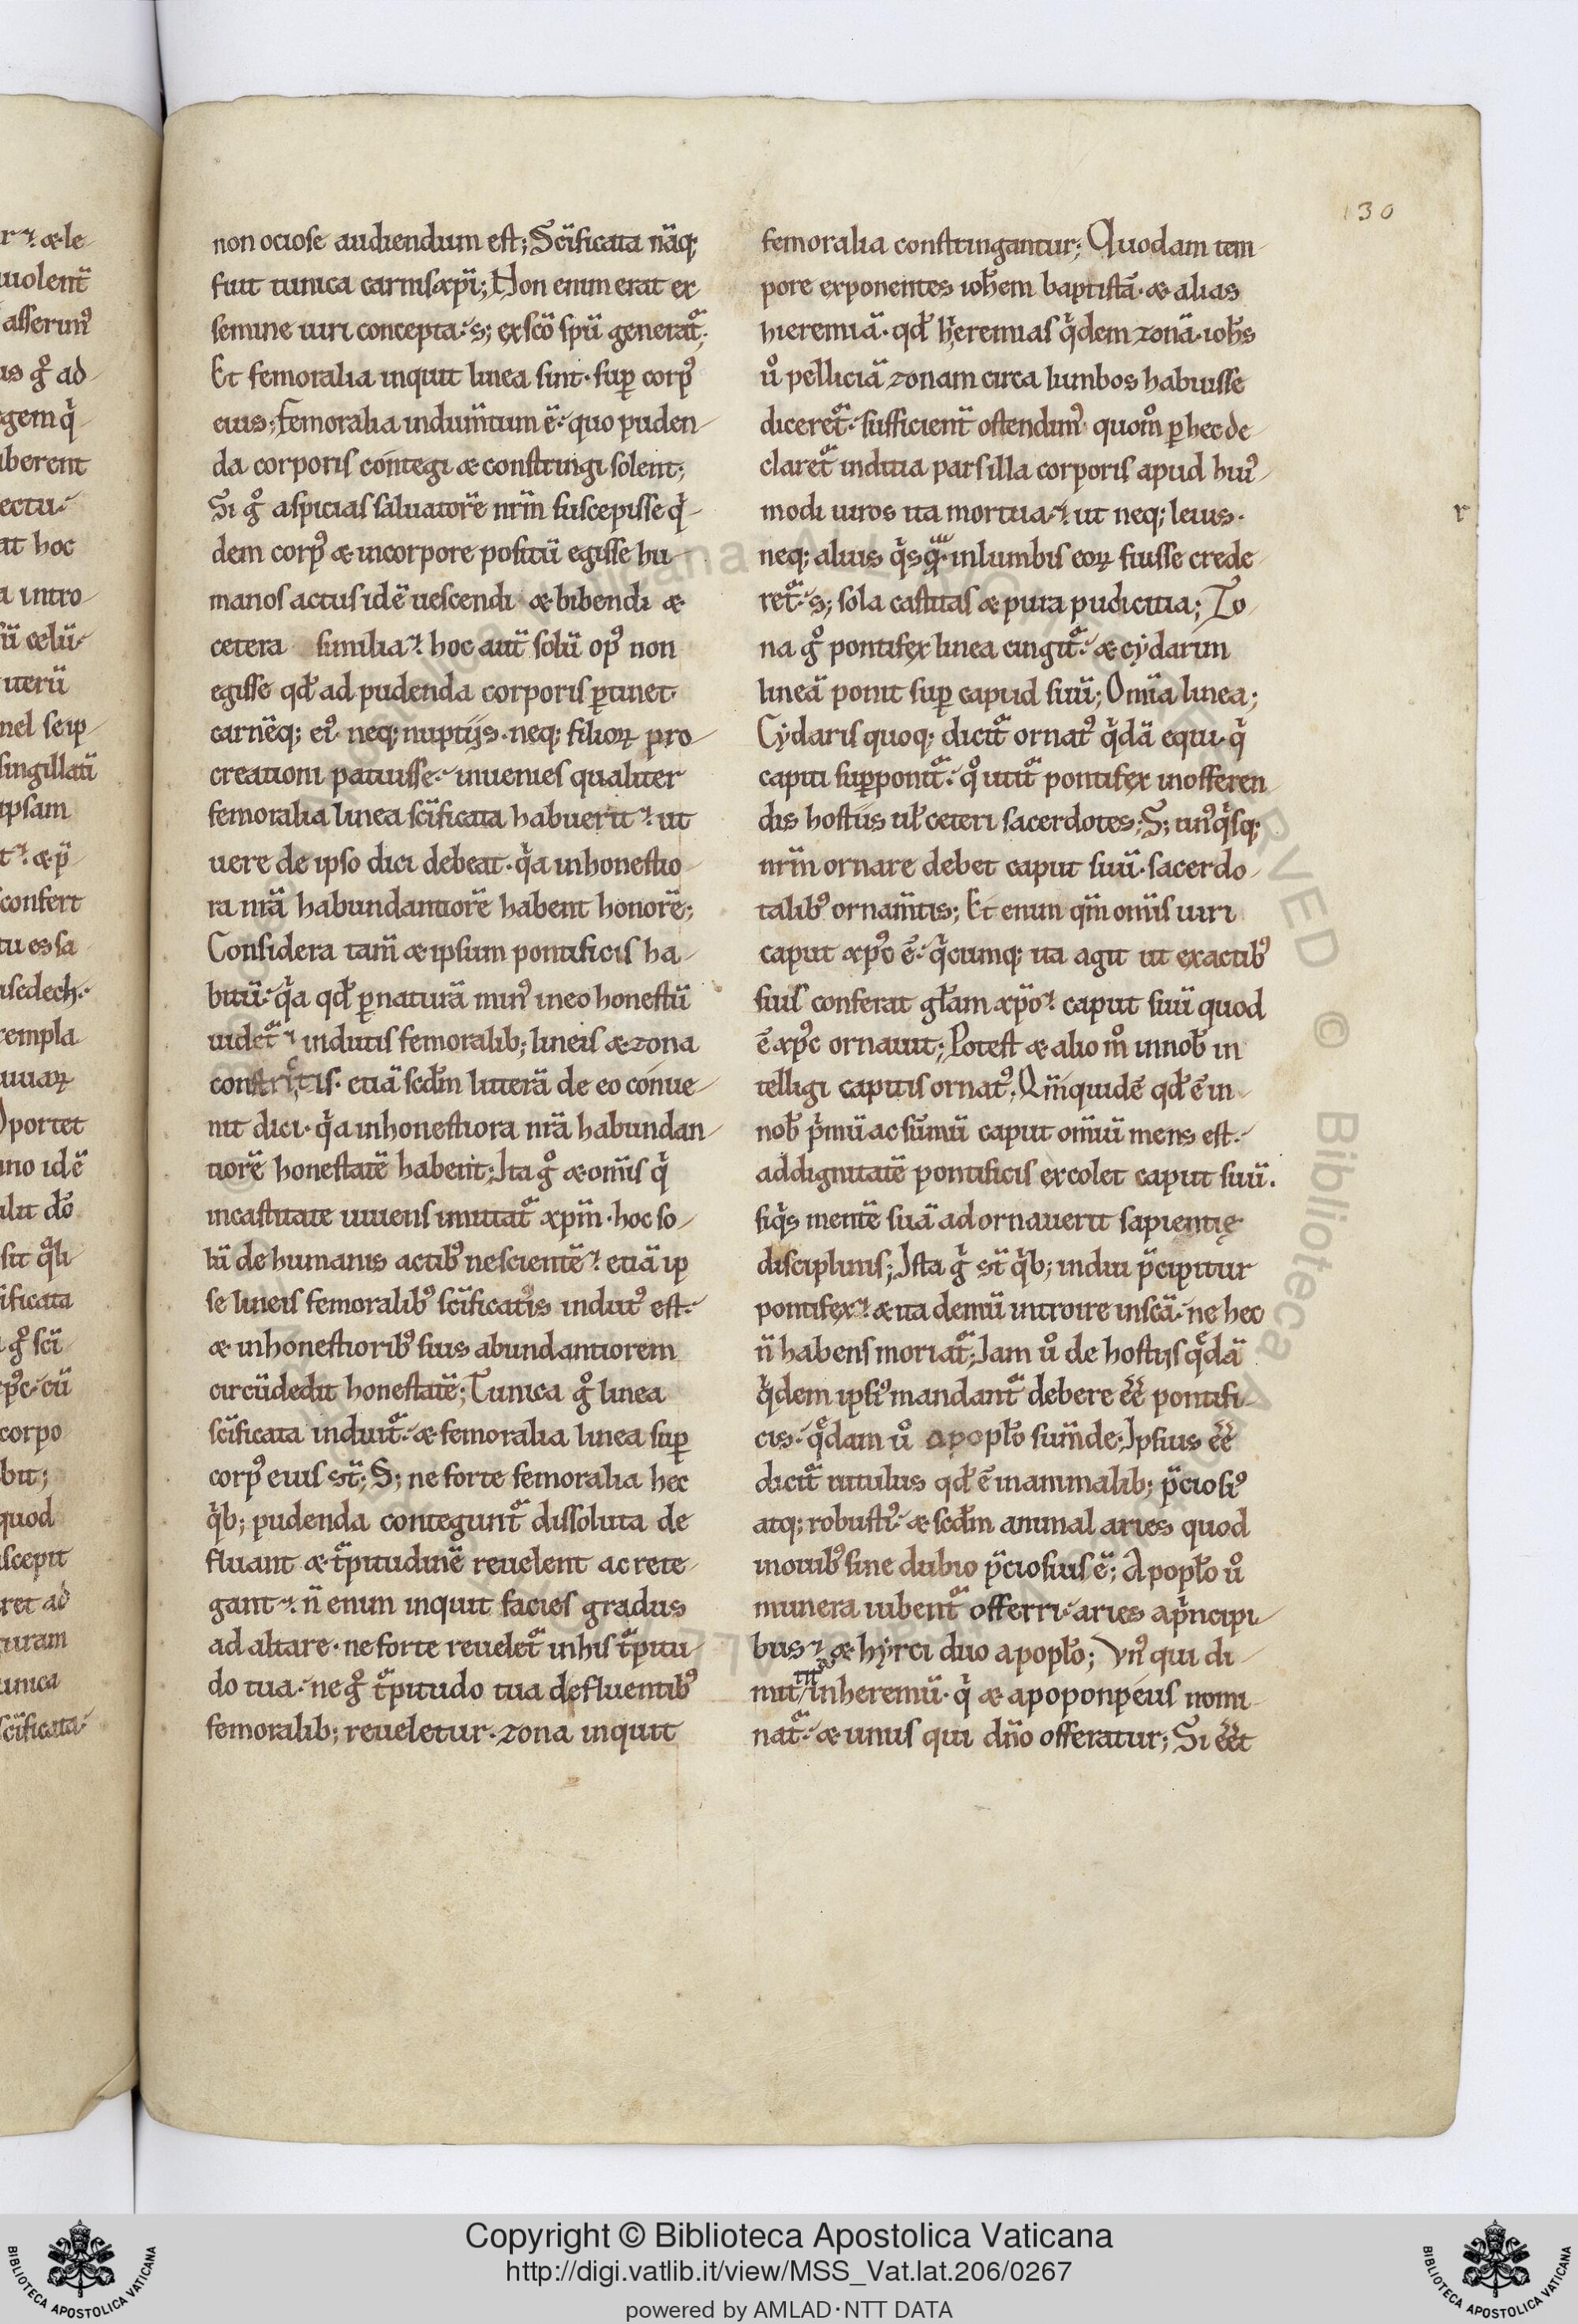 130
non ociose audiendum est; Scīficata nāq;
fuit tunica carnis xp̄i; Non enim erat ex
semine uiri concepta· s; ex sc̄o sp̄u generat᷑;
Et femoralia inquit linea sint· sup̲ corpꝰ
eius; Femoralia indum̄tum ē· quo puden-
da corporis contegi æ constringi solent;
Si gͦ aspicias saluatorē nr̄m suscepisse qͥ-
dem corpꝰ æ in corpore positū egisse hu-
manos actus idē uescendi æ bibendi æ
cetera similia· hoc aut̄ solū opꝰ non
egisse qd̄ ad pudenda corporis p̲tinet
carnēq; eiꝰ neq; nuptijs· neq; filioꝝ pro-
creationi patuisse· inuenies qualiter
femoralia linea scīficata habuerit· ut
uere de ipso dici debeat· qͥa inhonestio-
ra nr̄a habundantiorē habent honorē;
Considera tam̄ æ ipsum pontificis ha-
bitū· qͥa qd̄ p̲ naturā minꝰ in eo honestū
uidet᷑· indutis femoralib; lineis æ zona
constrictis· etiā scd̄m litterā de eo conue-
nit dici· qͥa inhonestiora nr̄a habundan-
tiorē honestatē habent; Ita gͦ æ om̄is qͥ
in castitate uiuens imitat᷑ xp̄m· hoc so-
lū de humanis actibꝰ nescientē· etiā ip
se lineis femoralibꝰ scīficatis indutꝰ est·
æ inhonestioribꝰ suis abundantiorem
circūdedit honestatē; Tunica gͦ linea
scīficata induit᷑· æ femoralia linea sup̲
corpꝰ eius st̄; S; ne forte femoralia hec
qͥb; pudenda contegunt᷑ dissoluta de
fluant æ t᷑pitudinē reuelent ac rete-
gant· n̄ enim inquit facies gradus
ad altare· ne forte reuelet᷑ in his t᷑pitu-
do tua· ne gͦ t᷑pitudo tua defluentibꝰ
femoralib; reueletur· zona inquit
femoralia constringantur; Quodam tem-
pore exponentes ioh̄em baptistā· æ alias
hieremiā· qd̄ hieremias qͥdem zonā· ioh̄s
uͦ pelliciā zonam circa lumbos habuisse
diceret᷑· sufficient̄ ostendimꝰ quom̊ p̲ hec de-
claret᷑ inditia pars illa corporis apud huiꝰ-
modi uiros ita mortua· ut neq; leuis·
neq; alius qͥsqͣ in lumbis eoꝝ fuisse crede-
ret᷑· s; sola castitas æ pura pudicitia; Zo-
na gͦ pontifex linea cingit᷑· æ cydarim
lineā ponit sup̲ capud suū; Om̄ia linea;
Cydaris quoq; dicit᷑ ornatꝰ qͥdā equi· qͥ
capiti sup̲ponit᷑· qͦ utit᷑ pontifex in offeren-
dis hostiis ul̄ ceteri sacerdotes; S; unꝰqͥsq;
nr̄m ornare debet caput suū· sacerdo-
talibꝰ ornam̄tis; Et enim qm̄ om̄is uiri
caput xp̄c ē· qͥcumq; ita agit ut ex actibꝰ
suis conferat gl̄am xp̄o· caput suū quod
ē xp̄c ornauit; Potest æ alio m̊ in nob̄ in
telligi capitis ornatꝰ; Qm̄ quidē qd̄ ē in
nob̄ pͥmū ac sūmū caput om̄iū mens est·
ad dignitatē pontificis excolet caput suū·
siqͥs mentē suā adornauerit sapientię
disciplinis; Ista gͥ st̄ qͥb; indui p̄cipitur
pontifex· æ ita demū introire in sc̄ā· ne hec
n̄ habens moriat᷑; Iam uͦ de hostijs qͤdā
qͥdem ipsiꝰ mandant᷑ debere ee̅ pontifi-
cis· qͤdam uͦ a pop̄lo sum̄de; Ipsius ee̅
dicit᷑ uitulus qd̄ ē in animalib; p̄ciosiꝰ
atq; robustiꝰ· æ scd̄m animal aries quod
in ouibꝰ sine dubio p̄ciosius ē; A pop̄lo uͦ
munera iubent᷑ offerri· aries a pͥncipi-
bus· æ hyrci duo a pop̄lo; Vnꝰ qui di
mittit᷑ in heremū· qͥ æ apoponpeius nomi-
nat᷑· æ unus qui dn̄o offeratur; Si ee̅t
Copyright © Biblioteca Apostolica Vaticana
http://digi.vatlib.it/view/MSS_Vat.lat.206/0267
powered by AMLAD·NTT DATA